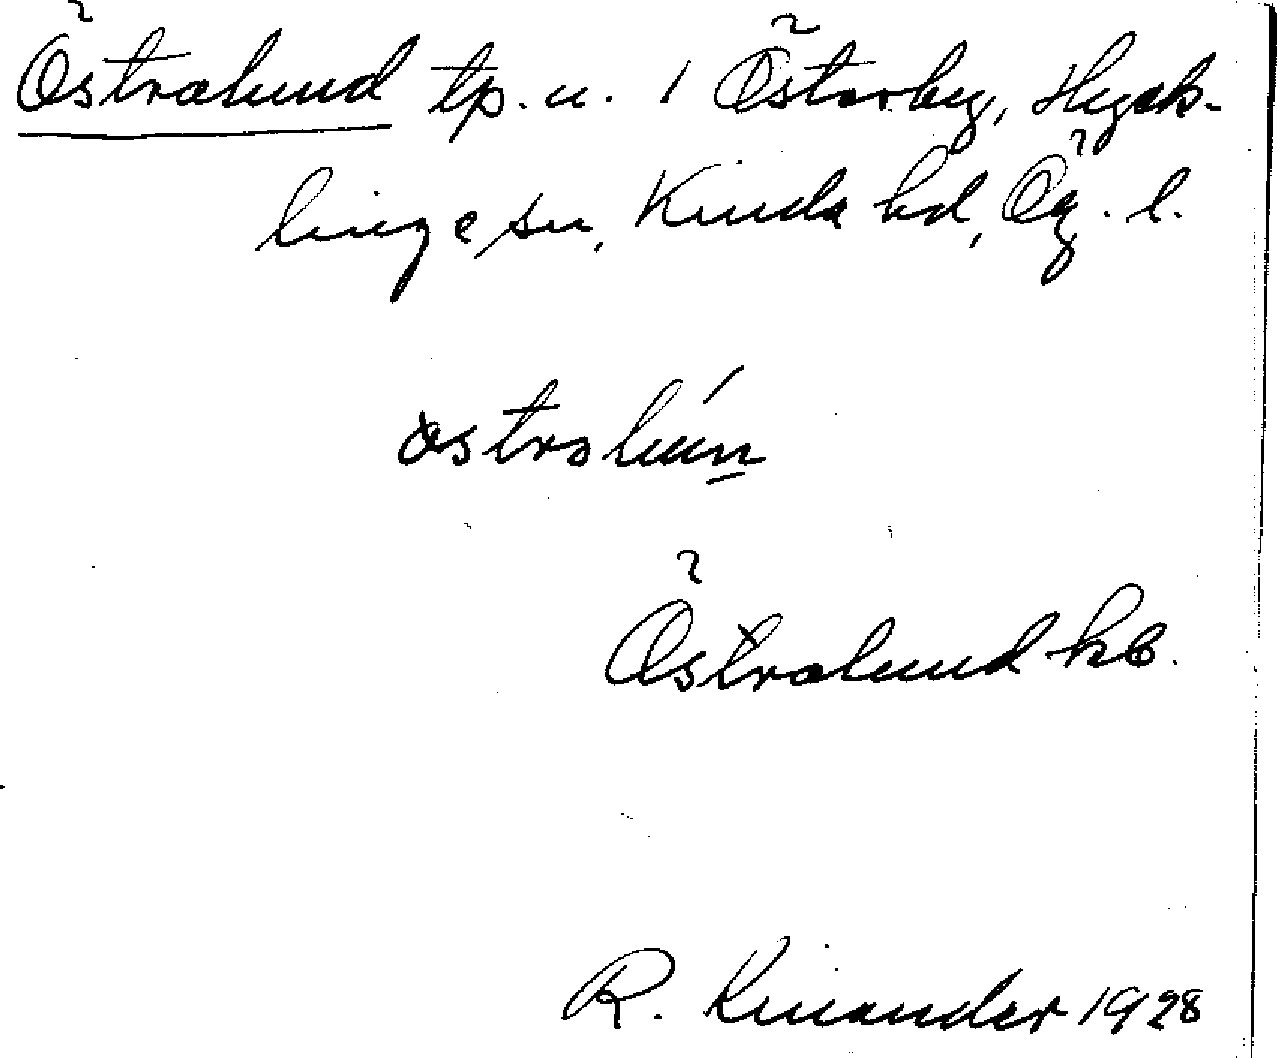 Östralund tp. u. / Österby, Hyck-
linge sn, Kinda hd, Ög. l.
östrolún
Östralund kb.
R. Kinander 1928